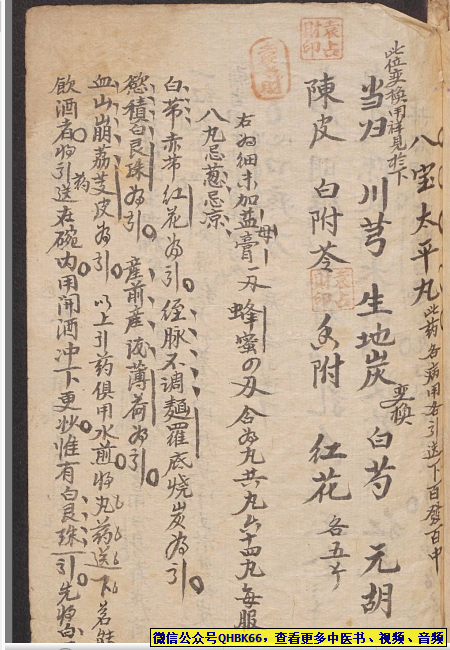 八宝太平丸 此药各病用右引送下百發百中
此位变换用祥見於下
当归 川芎 生地炭 变换 白芍 元胡
陳皮 白附苓 香附 红花 各五才
袁占財印
右为细末加益母膏一刄蜂蜜四刄合为丸共丸六十四丸每服
八丸忌葱忌凉
白带赤带红花为引 经脉不调麵羅底烧炭为引
慾積白艮珠为引 産前産後薄荷为引
血山崩荔芰皮为引 以上引药俱用水煎将丸药送下若能
飲酒者将药引送在碗内用開酒冲下更妙惟有白艮珠引先将白
微信公众号QHBK66，查看更多中医书、视频、音频